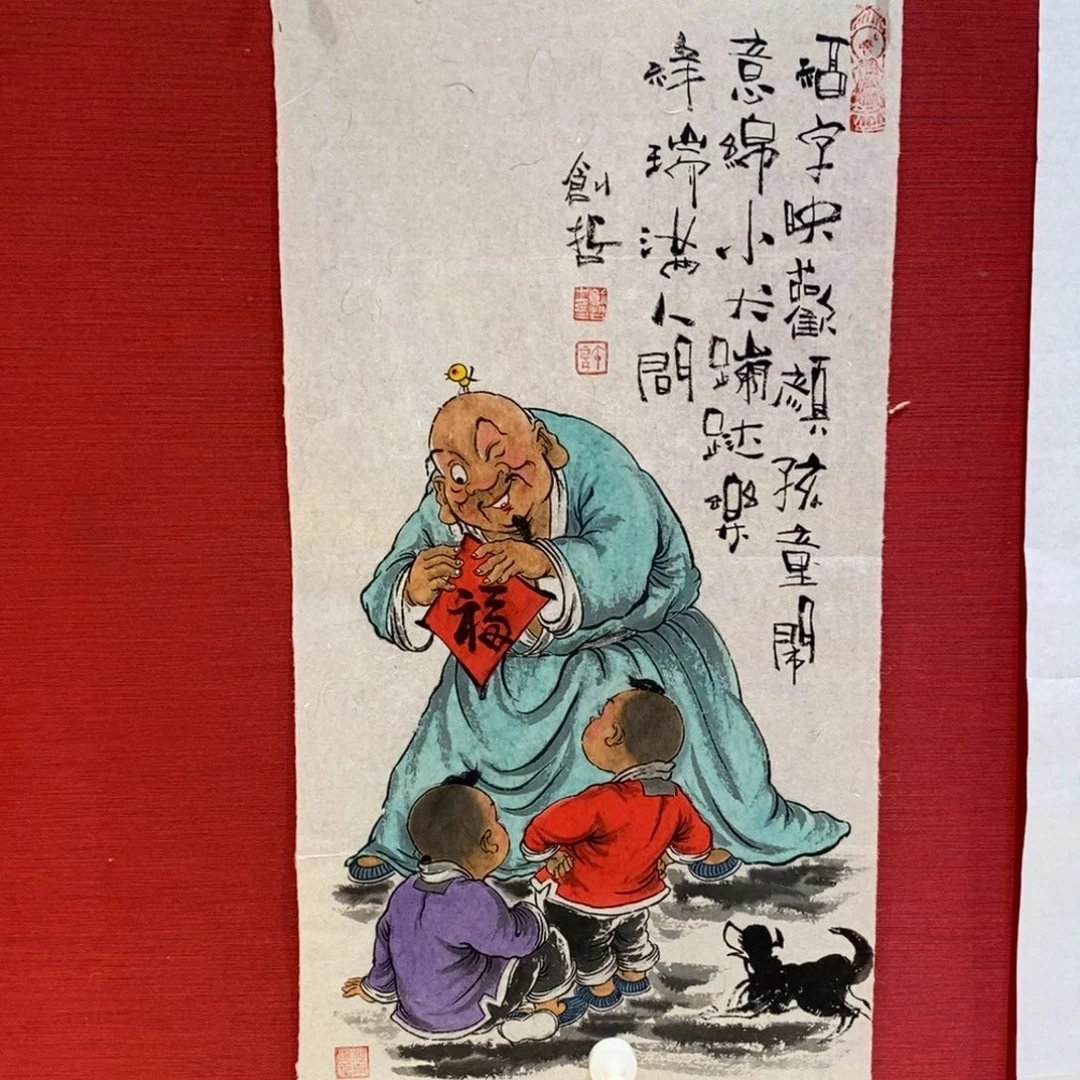 福字映歡顔孩童鬧
意綿小犬蹦跶樂
祥瑞滿人間
創哲
福